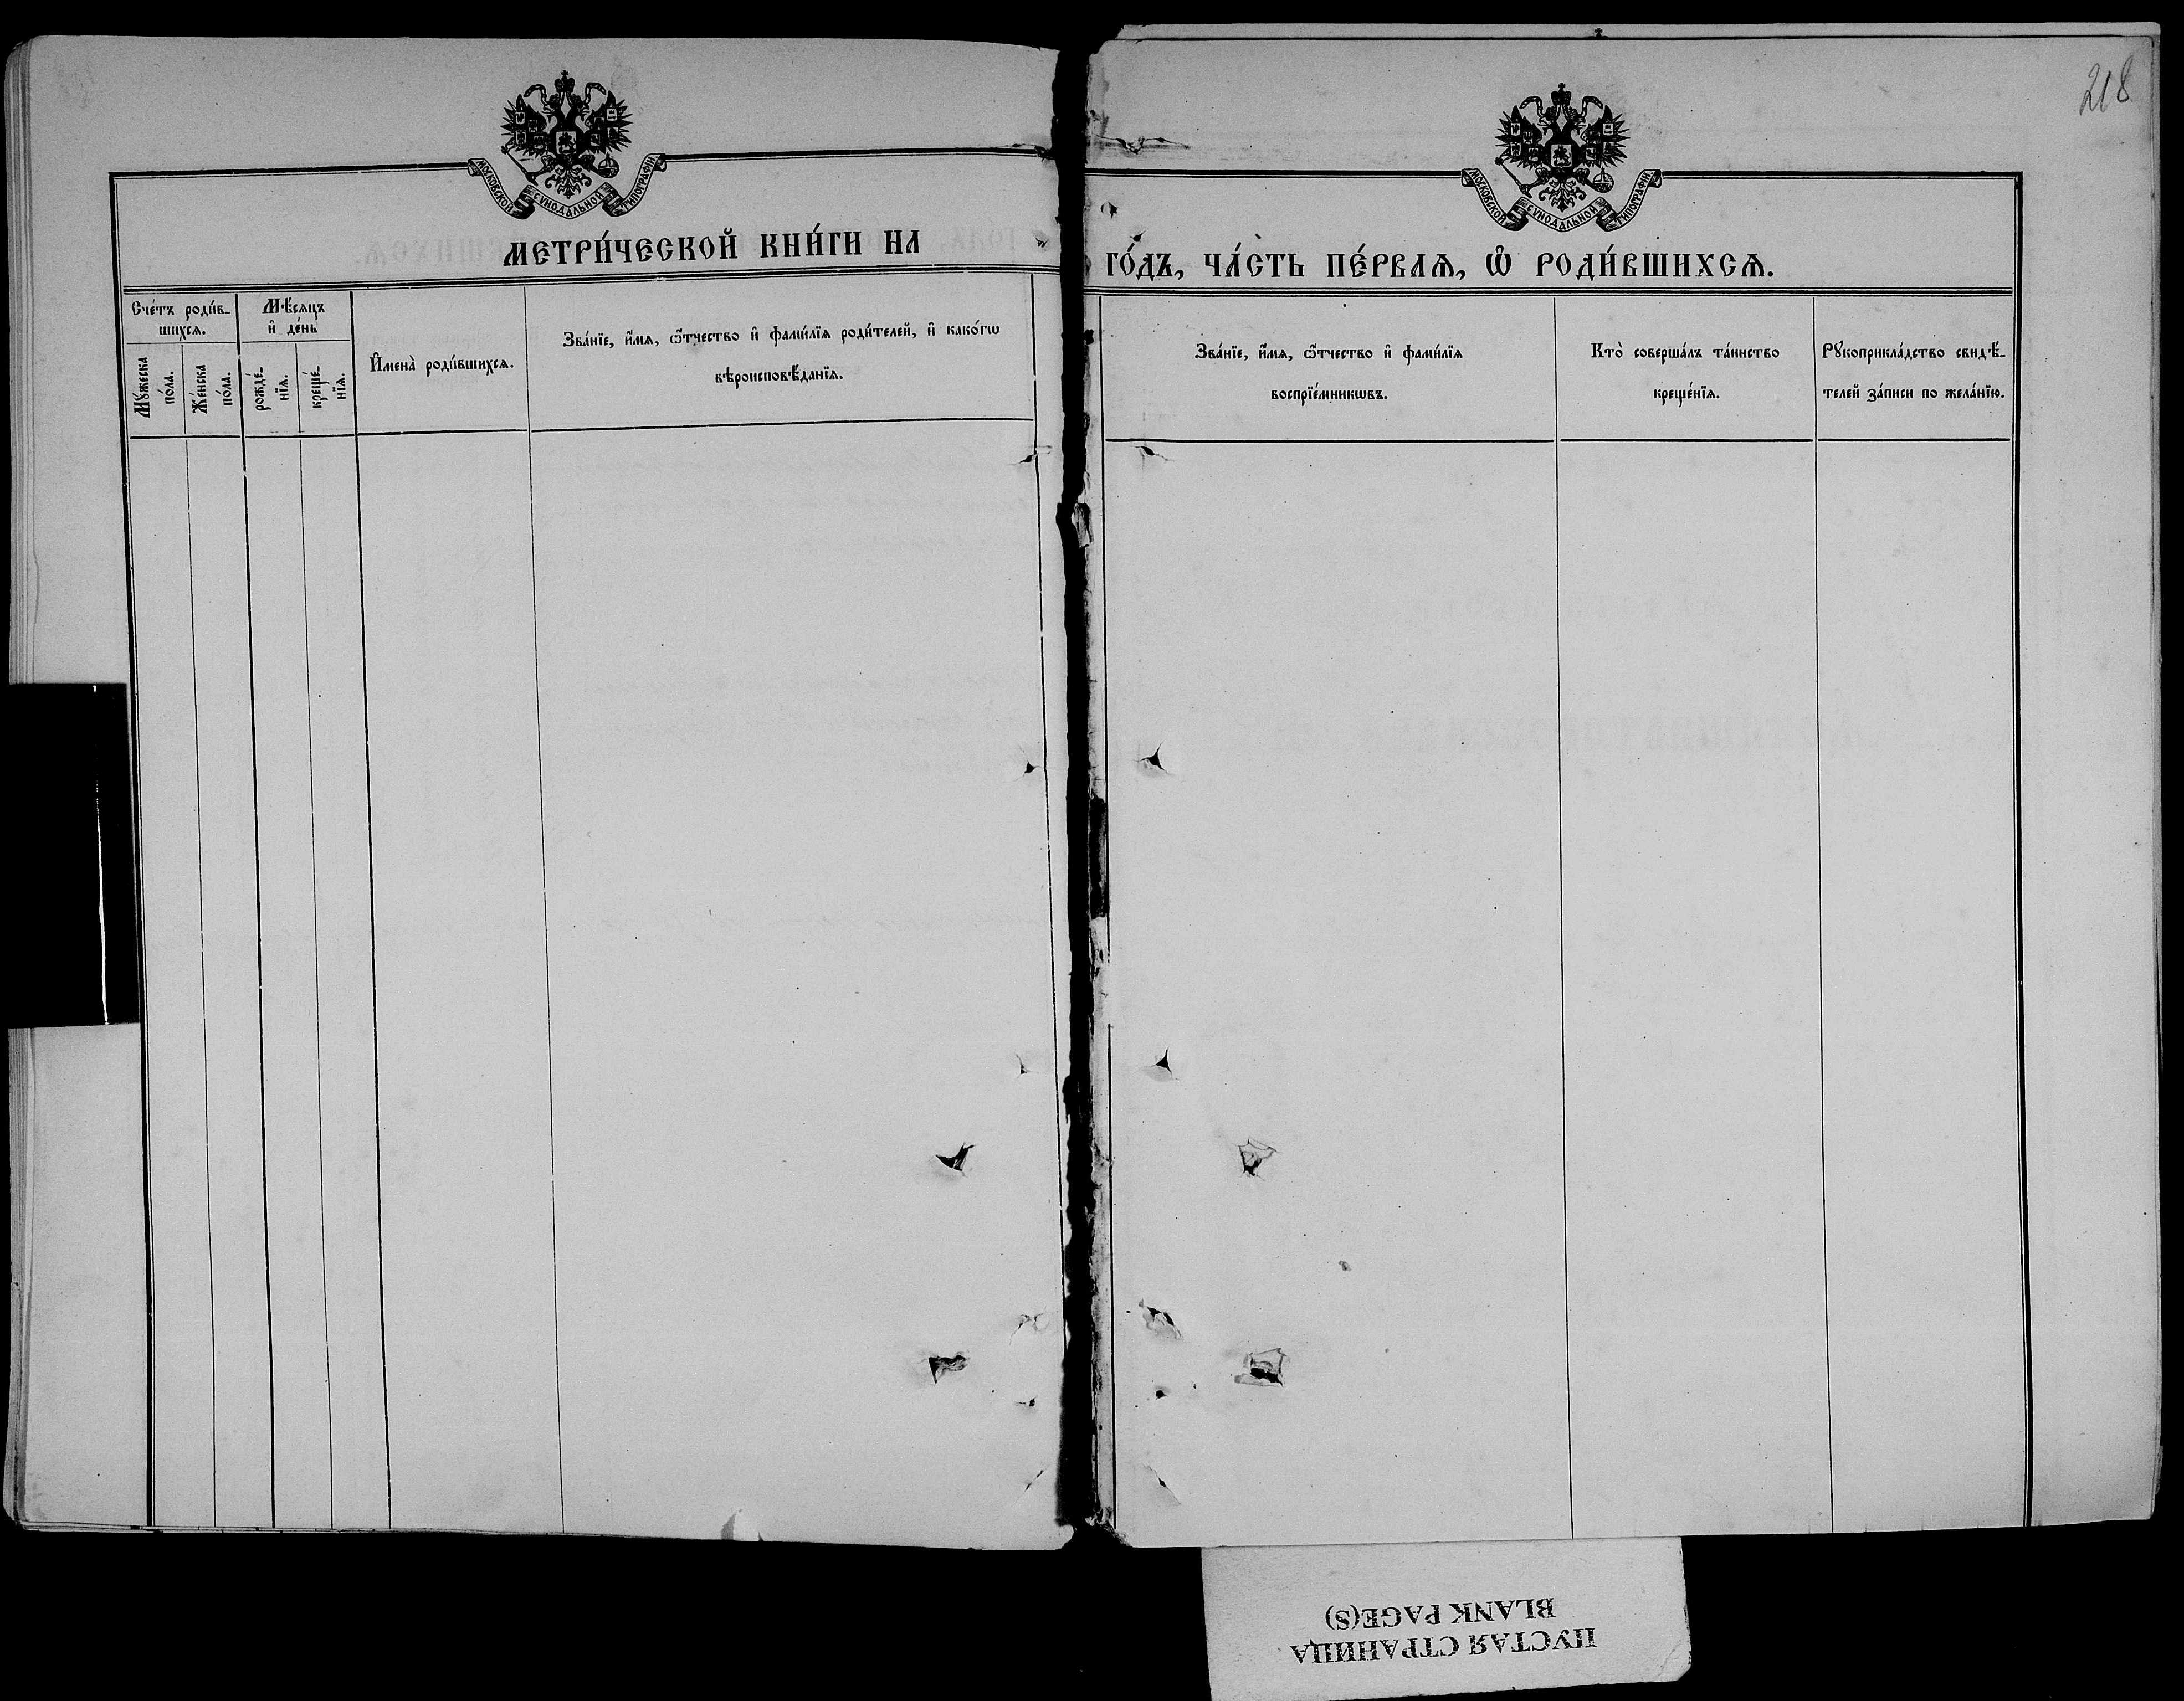 218
МОСКОВСКОЙ СѴНОДАЛЬНОЙ ТИПОГРАФІИ
МОСКОВСКОЙ СѴНОДАЛЬНОЙ ТИПОГРАФІИ
МЕТРИ́ЧЕСКОЙ КНИ́ГИ НА
ГО́ДЪ, ЧА́СТЬ ПЕ́РВАѦ, Ѽ РОДИ́ВШИХСѦ.
Сче́тъ роди́в-
шихсѧ.
Мꙋ́жеска
по́ла.
Же́нска
по́ла.
Мѣ́сѧцъ
и҆ де́нь
рожде́-
нїѧ.
креще́-
нїѧ.
И҆мена̀ роди́вшихсѧ.
Зва́нїе, и҆́мѧ, ѻ҆́тчество и҆ фами́лїѧ роди́телей, и҆ како́гѡ
вѣроисповѣ́данїѧ.
Зва́нїе, и҆́мѧ, ѻ҆́тчество и҆ фами́лїѧ
воспрїе́мникѡвъ.
Кто̀ соверша́лъ та́инство
креще́нїѧ.
Рꙋкоприкла́дство свидѣ́-
телей за́писи по жела́нїю.
ПУСТАЯ СТРАНИЦА
BLANK PAGE(S)